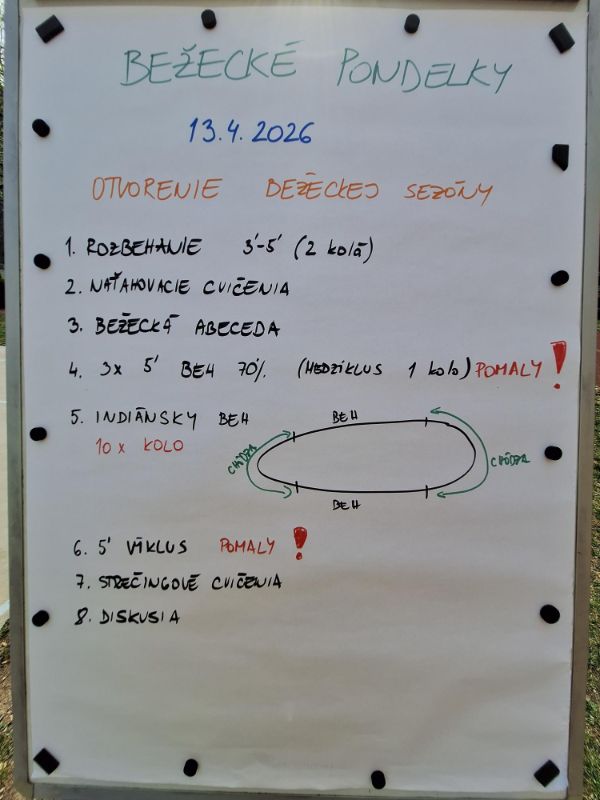 BEŽECKÉ PONDELKY
13.4.2026
OTVORENIE BEŽECKEJ SEZÓNY
1. ROZBEHANIE 3'-5' (2 kolá)
2. NAŤAHOVACIE CVIČENIA
3. BEŽECKÁ ABECEDA
4. 3x 5' BEH 70% (MEDZIKLUS 1 kolo) POMALY!
5. INDIÁNSKY BEH
10 x KOLO
BEH
CHÔDZA
CHÔDZA
BEH
6. 5' VÍKLUS POMALY!
7. STREČINGOVÉ CVIČENIA
8. DISKUSIA